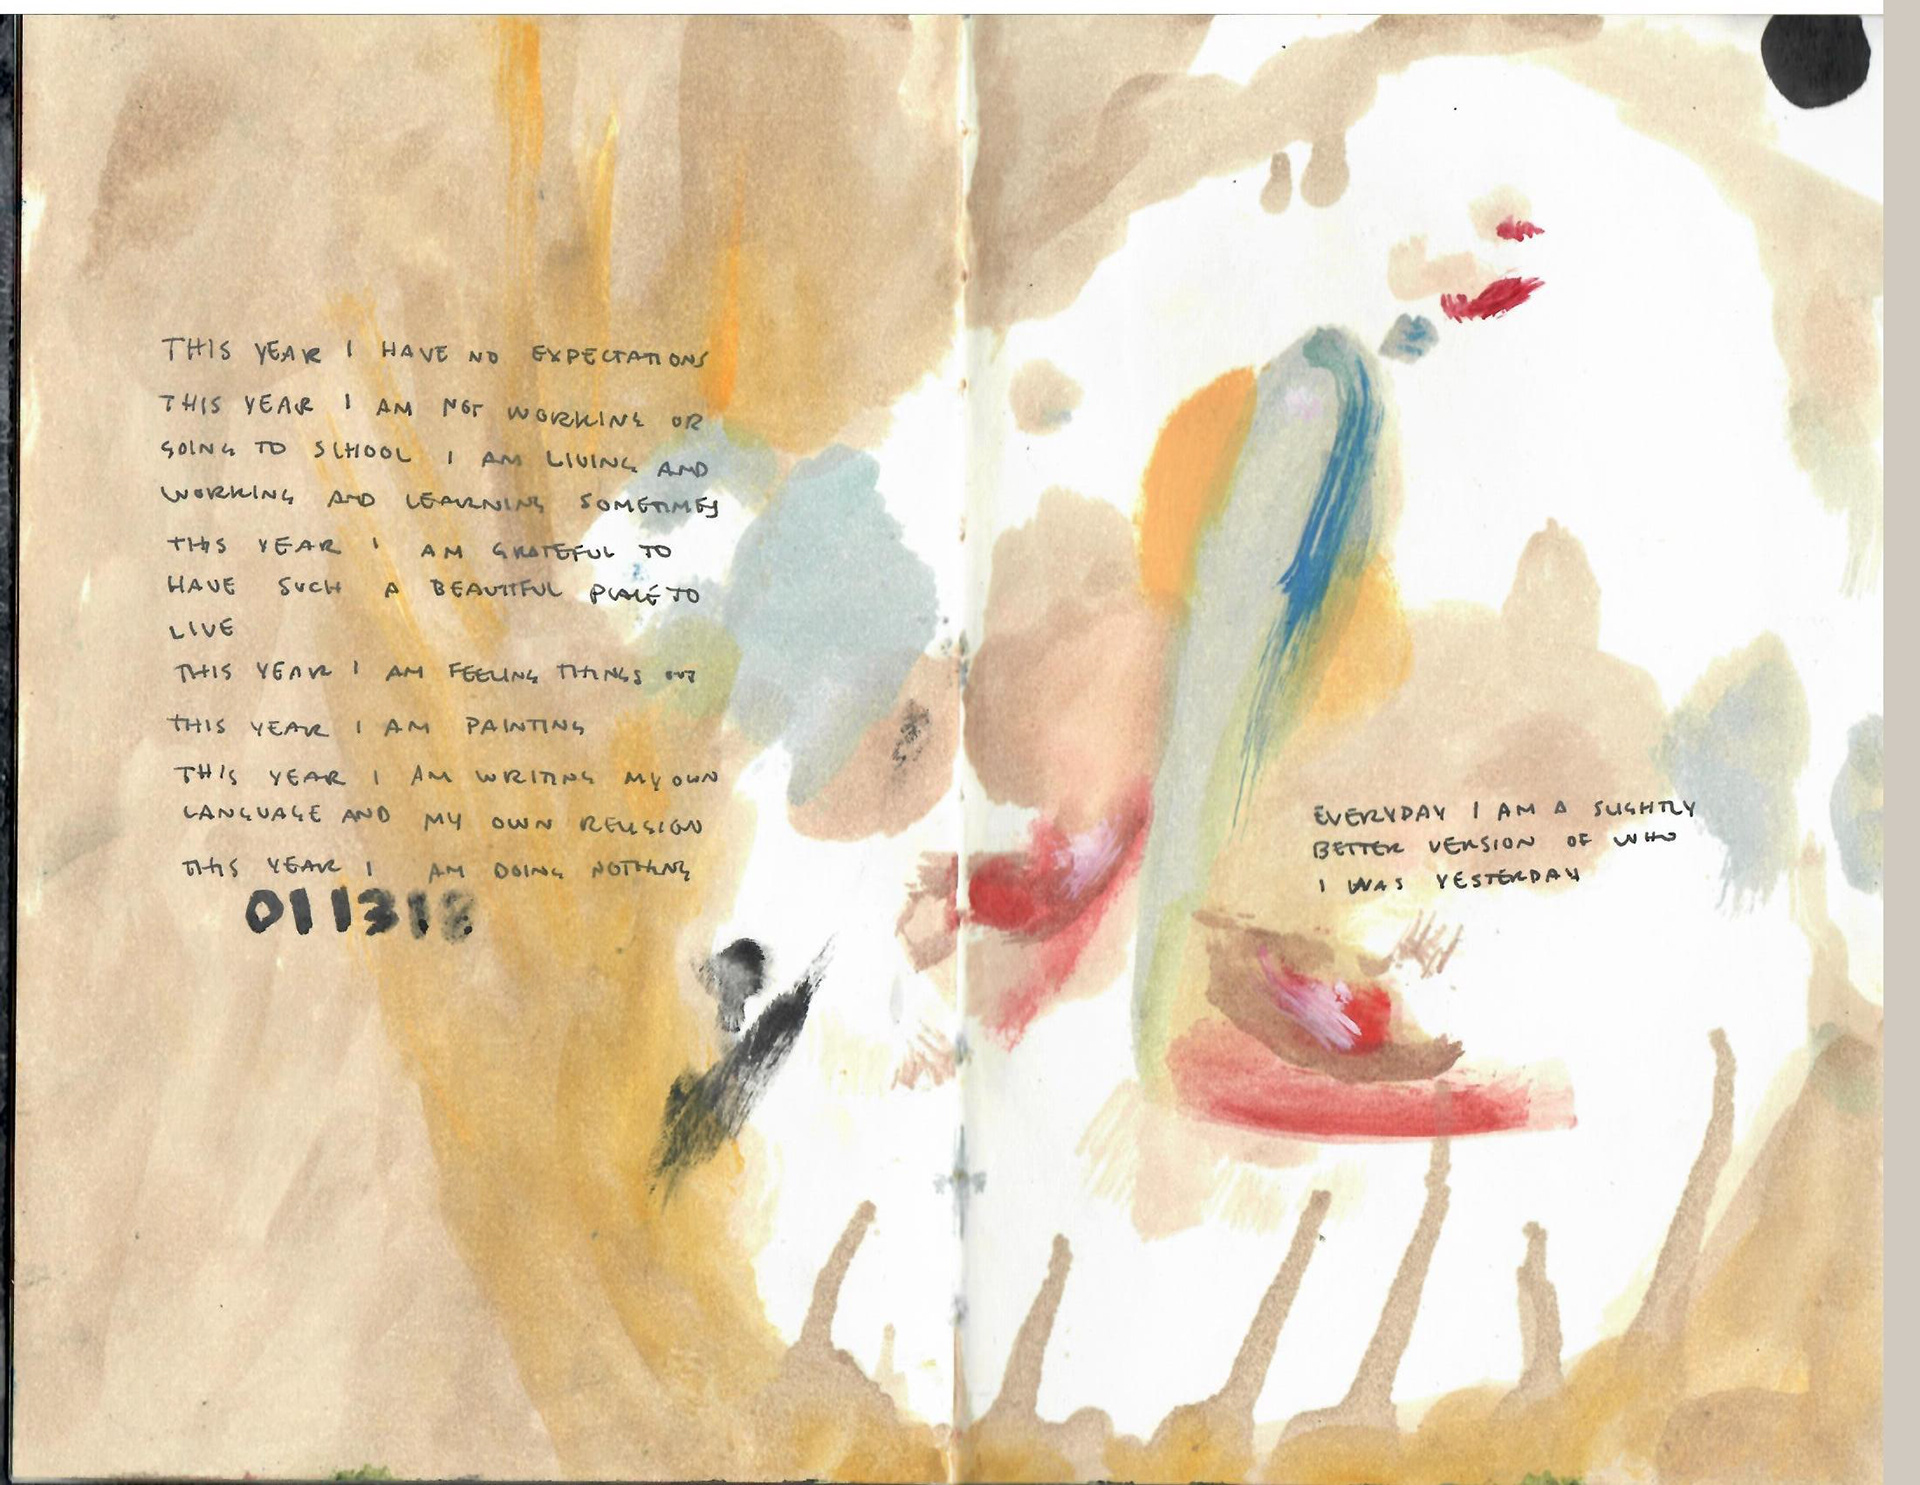 THIS YEAR I HAVE NO EXPECTATIONS
THIS YEAR I AM NOT WORKING OR
GOING TO SCHOOL I AM LIVING AND
WORKING AND LEARNING SOMETIMES
THIS YEAR I AM GRATEFUL TO
HAVE SUCH A BEAUTIFUL PLACE TO
LIVE
THIS YEAR I AM FEELING THINGS OUT
THIS YEAR I AM PAINTING
THIS YEAR I AM WRITING MY OWN
LANGUAGE AND MY OWN RELIGION
THIS YEAR I AM DOING NOTHING
011318
EVERYDAY I AM A SLIGHTLY
BETTER VERSION OF WHO
I WAS YESTERDAY